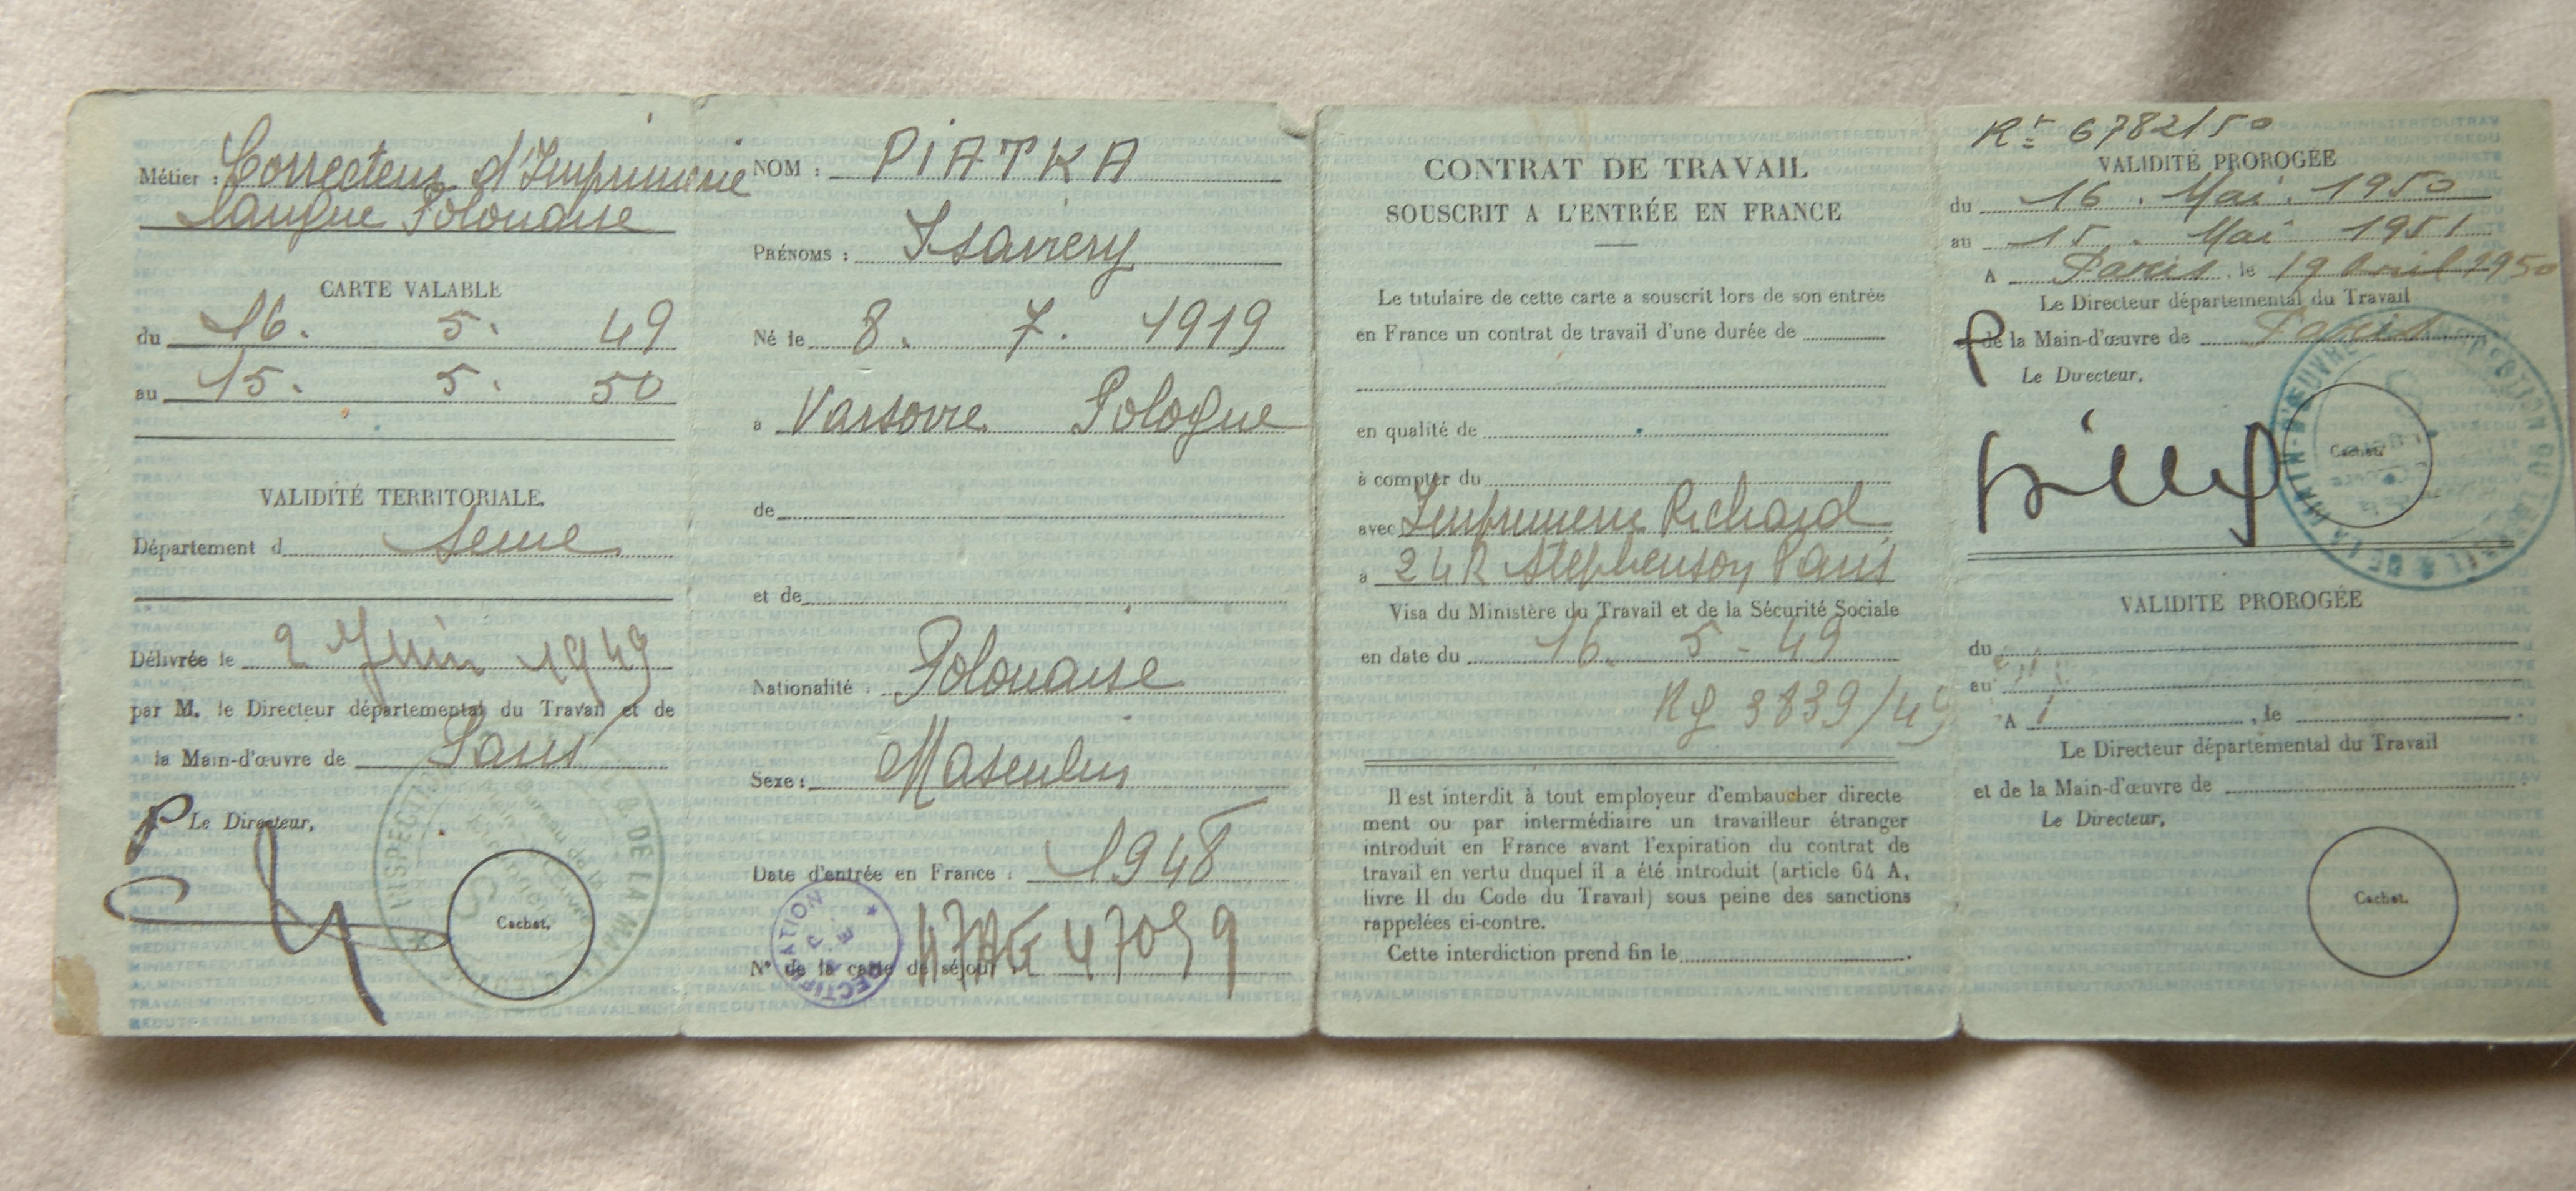 Métier : Correcteur d'Imprimerie
langue Polonaise
CARTE VALABLE
du 16. 5. 49
au 15. 5. 50
VALIDITÉ TERRITORIALE.
Département d Seine
Délivrée le 2 Juin 1949
par M. le Directeur départemental du Travail et de
la Main-d'œuvre de Paris
P Le Directeur,
Cachet.
NOM : PIATKA
PRÉNOMS :
Né le 8. 7. 1919
a Varsovie Pologne
de
et de
Nationalité : Polonaise
Sexe : Masculin
Date d'entrée en France : 1948
N° de la carte de séjour :
RECTIFICATION
CONTRAT DE TRAVAIL
SOUSCRIT A L'ENTRÉE EN FRANCE
Le titulaire de cette carte a souscrit lors de son entrée
en France un contrat de travail d'une durée de
en qualité de
à compter du
avec Imprimerie Richard
a 24 R Stephenson Paris
Visa du Ministère du Travail et de la Sécurité Sociale
en date du 16. 5 - 49
Rg 3839/49
Il est interdit à tout employeur d'embaucher directe
ment ou par intermédiaire un travailleur étranger
introduit en France avant l'expiration du contrat de
travail en vertu duquel il a été introduit (article 64 A,
livre II du Code du Travail) sous peine des sanctions
rappelées ci-contre.
Cette interdiction prend fin le
Rt 6782/50
VALIDITÉ PROROGÉE
du 16. Mai. 1950
au 15. Mai 1951
A Paris, le 19 Avril 1950
Le Directeur départemental du Travail
et de la Main-d'œuvre de Paris
Le Directeur,
Cachet.
VALIDITÉ PROROGÉE
du
au
A , le
Le Directeur départemental du Travail
et de la Main-d'œuvre de
Le Directeur,
Cachet.